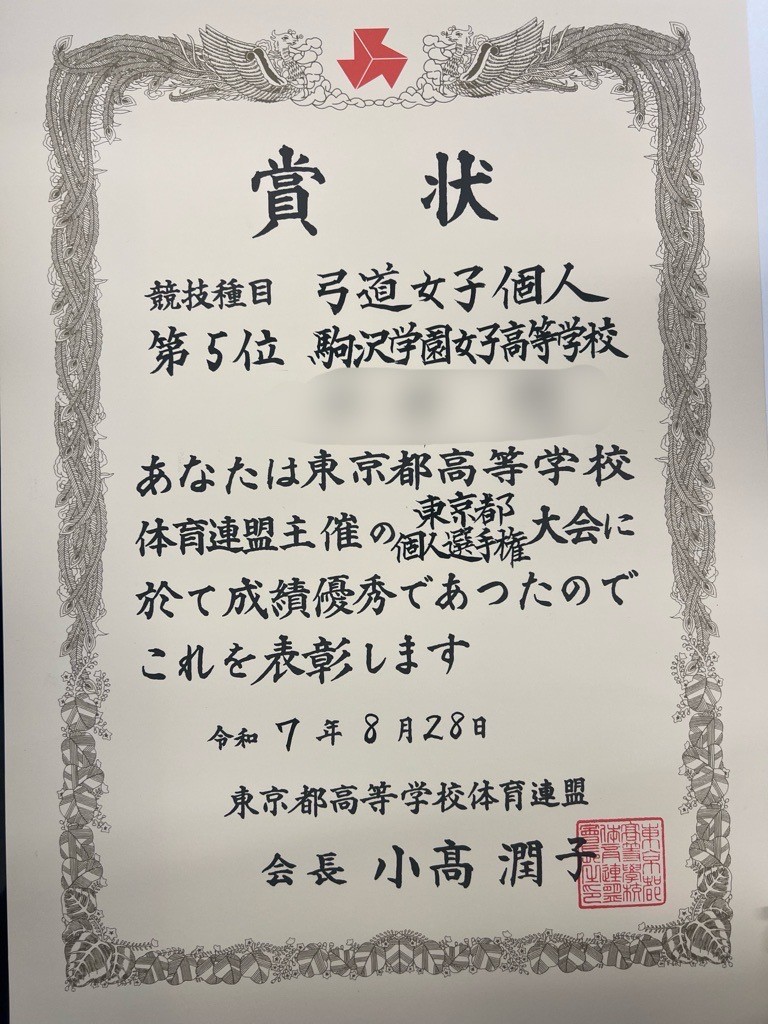 賞状
競技種目 弓道女子個人
第5位 駒沢学園女子高等学校
あなたは東京都高等学校
体育連盟主催の東京都個人選手権大会に
於て成績優秀であつたので
これを表彰します
令和7年8月28日
東京都高等学校体育連盟
会長 小髙潤子
東京都
高等学校
体育連盟